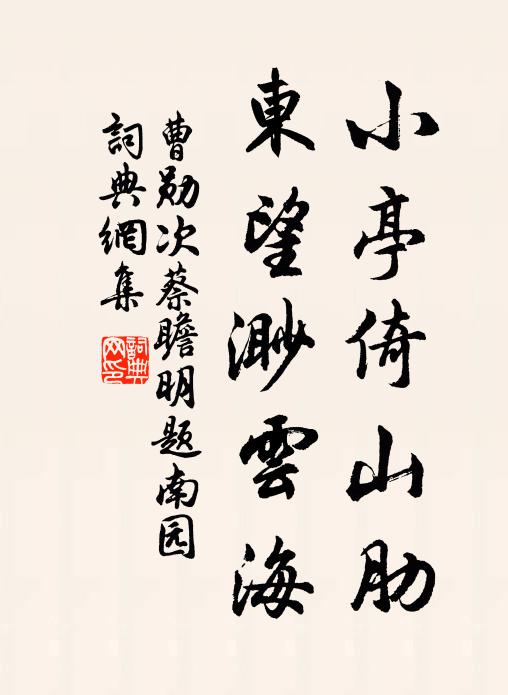 小亭倚山肋
東望渺雲海
曹勋次蔡瞻明题南园
詞典網集
詞典网印